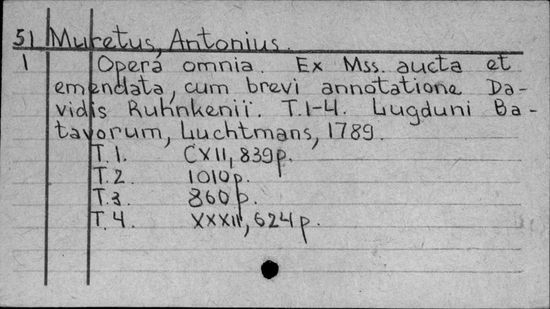 51 Muretus, Antonius.
1 Opera omnia. Ex Mss. aucta et
emendata, cum brevi annotatione Da-
vidis Ruhnkenii. T.1-4. Lugduni Ba-
tavorum, Luchtmans, 1789.
T.1. CXII, 839p.
T.2 1010p.
T.3 860p.
T.4. XXXII, 624p.